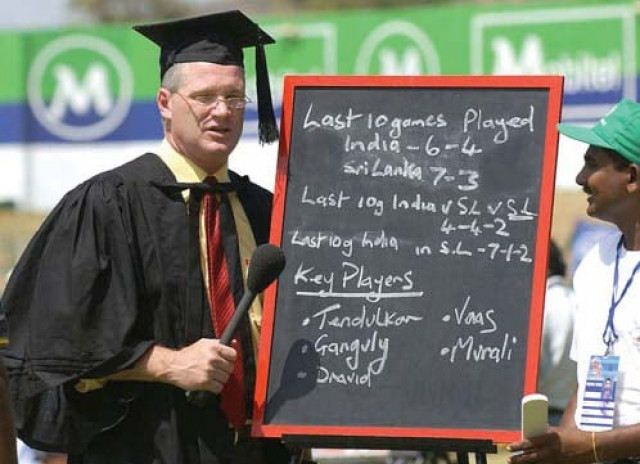 Mobitel
Last 10games Played
India - 6-4
Sri Lanka 7-3
Last 10g India v S.L v S.L
4-4-2
Last 10g India in S.L - 7-1-2
Key Players
• Tendulkar • Vaas
• Ganguly • Murali
• Dravid